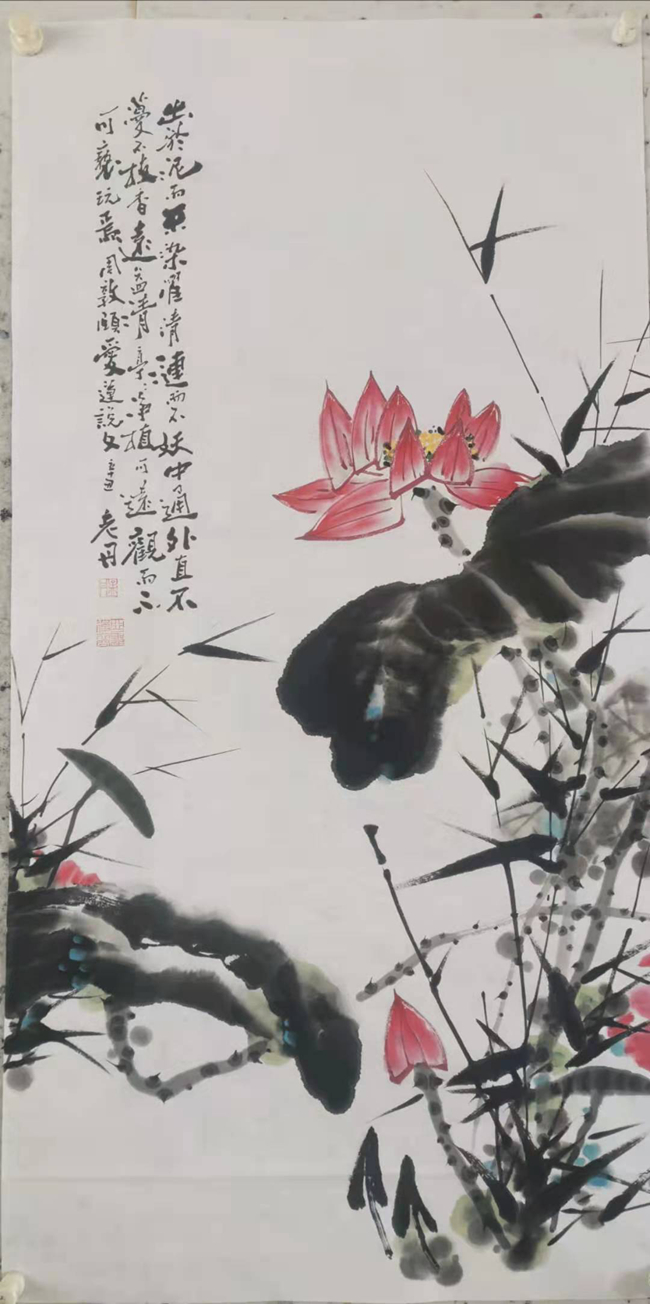 出於泥而不染濯清連而不妖中通外直不
蔓不枝香遠益清亭〻净植可遠觀而不
可褻玩焉周敦頤愛蓮說文辛丑老丹